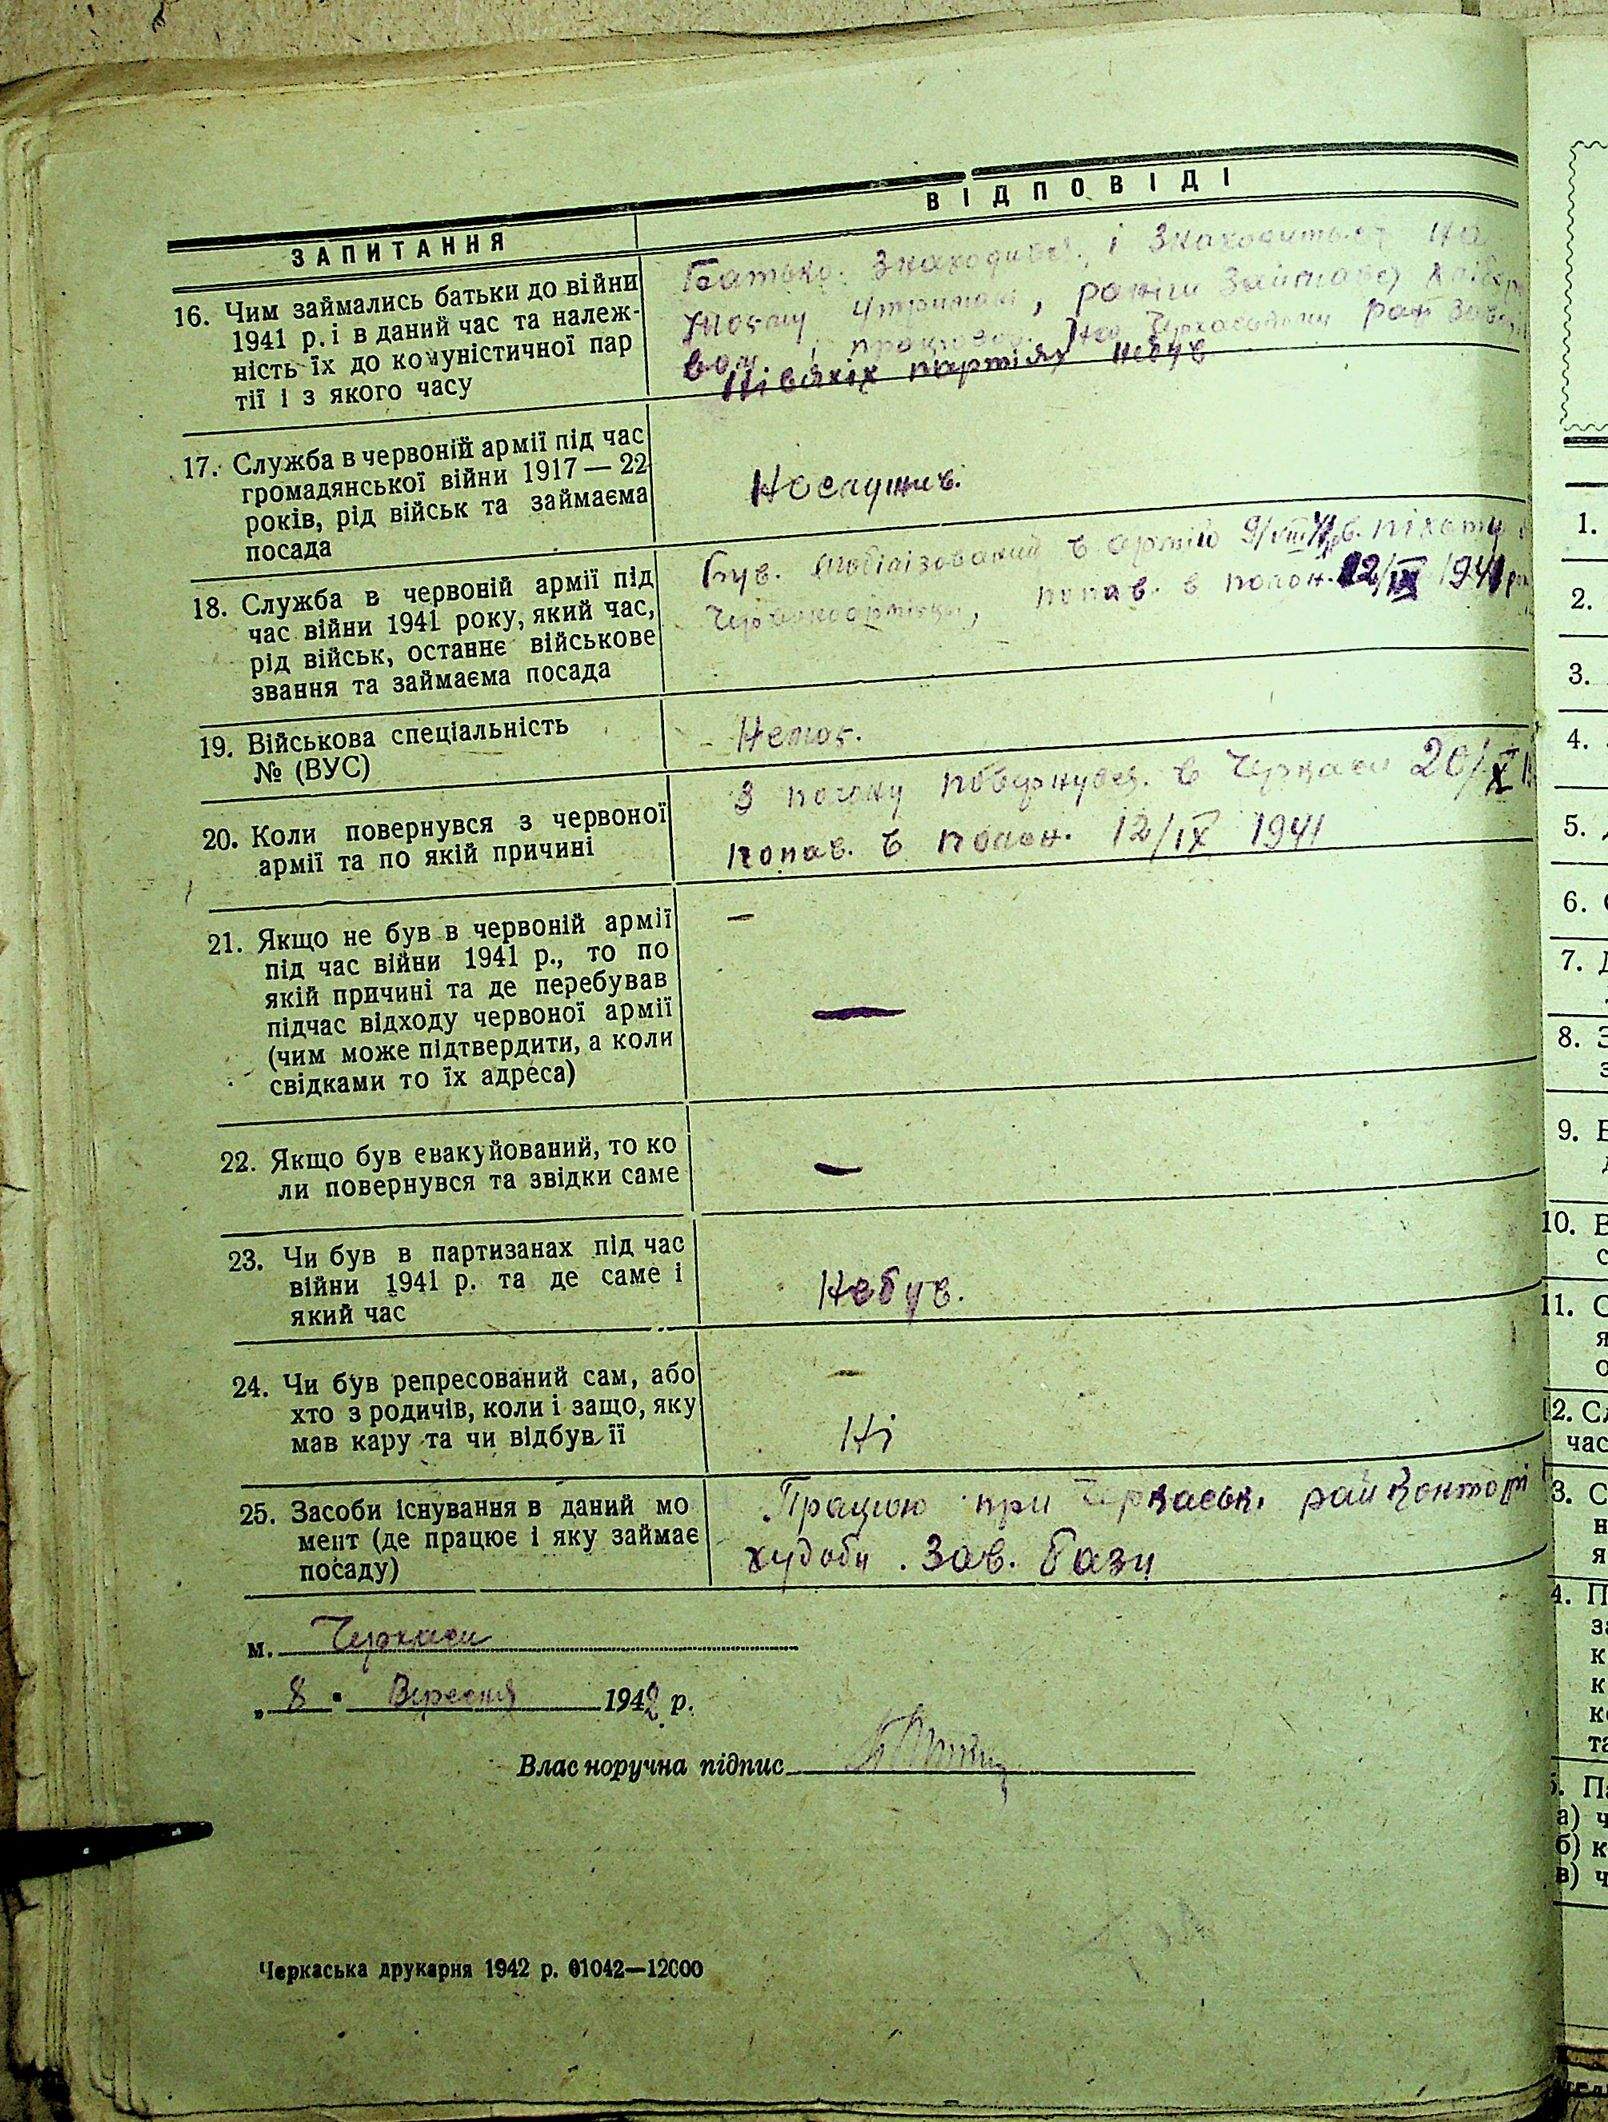 ЗАПИТАННЯ
ВІДПОВІДІ
16. Чим займались батьки до війни
1941 р. і в даний час та належ-
ність їх до комуністичної пар
тії і з якого часу
Батько. Знаходився, і Знаходиться на
моєму утримані, раніш Займався
Нівякіх партіях небув
17. Служба в червоній армії під час
громадянської війни 1917 — 22
років, рід військ та займаєма
посада
Неслужив.
18. Служба в червоній армії під
час війни 1941 року, який час,
рід військ, останнє військове
звання та займаєма посада
Був. мобілізований в армію 9/VIII в. піхоту
попав. в полон. 12/IX 1941
19. Військова спеціальність
№ (ВУС)
Немає.
20. Коли повернувся з червоної
армії та по якій причині
З полону повернувся. в Черкаси 20/X
попав. в полон. 12/IX 1941
21. Якщо не був в червоній армії
під час війни 1941 р., то по
якій причині та де перебував
підчас відходу червоної армії
(чим може підтвердити, а коли
свідками то їх адреса)
—
—
22. Якщо був евакуйований, то ко
ли повернувся та звідки саме
—
23. Чи був в партизанах під час
війни 1941 р. та де саме і
який час
Небув.
24. Чи був репресований сам, або
хто з родичів, коли і защо, яку
мав кару та чи відбув її
—
Ні
25. Засоби існування в даний мо
мент (де працює і яку займає
посаду)
Працюю при Черкаськ. райконторі
худоби. Зав. бази
м. Черкаси
„ 8 " Вересня 1942 р.
Власноручна підпис
Черкаська друкарня 1942 р. 01042—12000
1.
2.
3.
4.
5.
6.
7.
8.
9.
10.
11.
12.
час
3.
4.
а)
б)
в)